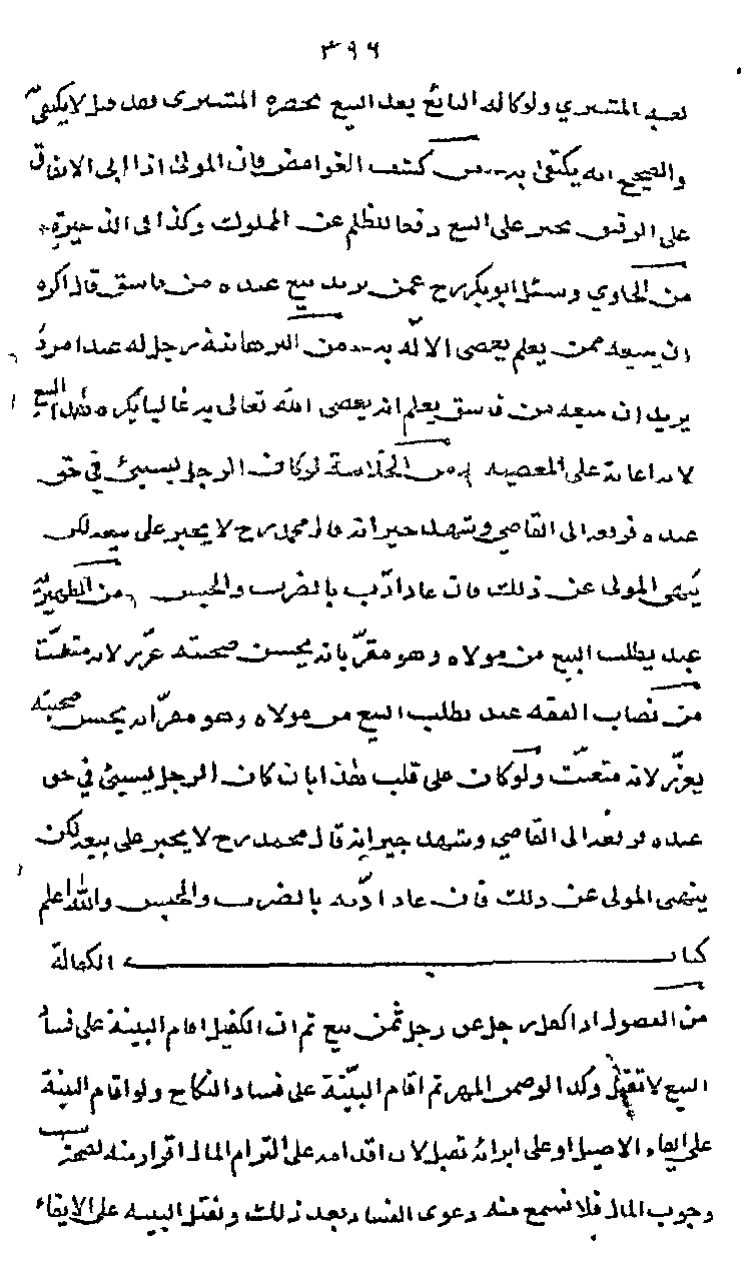 ٣٩٦
المشتري ولو كاله البائع بعد البيع بحضرة المشتري فقد قيل لا يكتفي
والصحيح انه يكتفى به من كشف الغوامض فان المولى اذا ابى الانفاق
على الرقيق يجبر على البيع دفعا للظلم عن المملوك وكذا في الذخيرة
من الحاوي وسئل ابو بكر رح عمن يريد بيع عبده من فاسق قال اكره
ان يبيعه ممن يعلم يعصى الاله به من البرهانية رجل له عبد امرد
يريد ان يبيعه من فاسق يعلم انه يعصى الله تعالى به غالبا يكره هذا البيع
لانه اعانة على المعصية من الخلاصة لو كان الرجل يسيئ في حق
عبده فرفعه الى القاضي وشهد جيرانه قال محمد رح لا يجبر على بيعه لكن
ينهى المولى عن ذلك فان عاد ادّب بالضرب والحبس من الظهيريّة
عبد يطلب البيع من مولاه وهو مقرّ بانه يحسن صحبته عزّر لانه متعنّت
من نصاب الفقه عبد يطلب البيع من مولاه وهو مقرّ انه يحسن صحبته
يعزّر لانه متعنّت ولو كان على قلب هذا بان كان الرجل يسيئ في حق
عبده فرفعه الى القاضي وشهد جيرانه قال محمد رح لا يجبر على بيعه لكن
ينهى المولى عن ذلك فان عاد ادّبه بالضرب والحبس والله اعلم
كتاب الكفالة
من الفصول اذا كفل رجل عن رجل ثمن بيع ثم ان الكفيل اقام البينة على فساد
البيع لا تقبل وكذا لو ضمن المهر ثم اقام البيّنة على فساد النكاح ولو اقام البينة
على ايفاء الاصيل او على ابرائه تقبل لان اقدامه على التزام المال اقرار منه لصحة سبب
وجوب المال فلا تسمع منه دعوى الفساد بعد ذلك وتقبل البينة على الايفاء